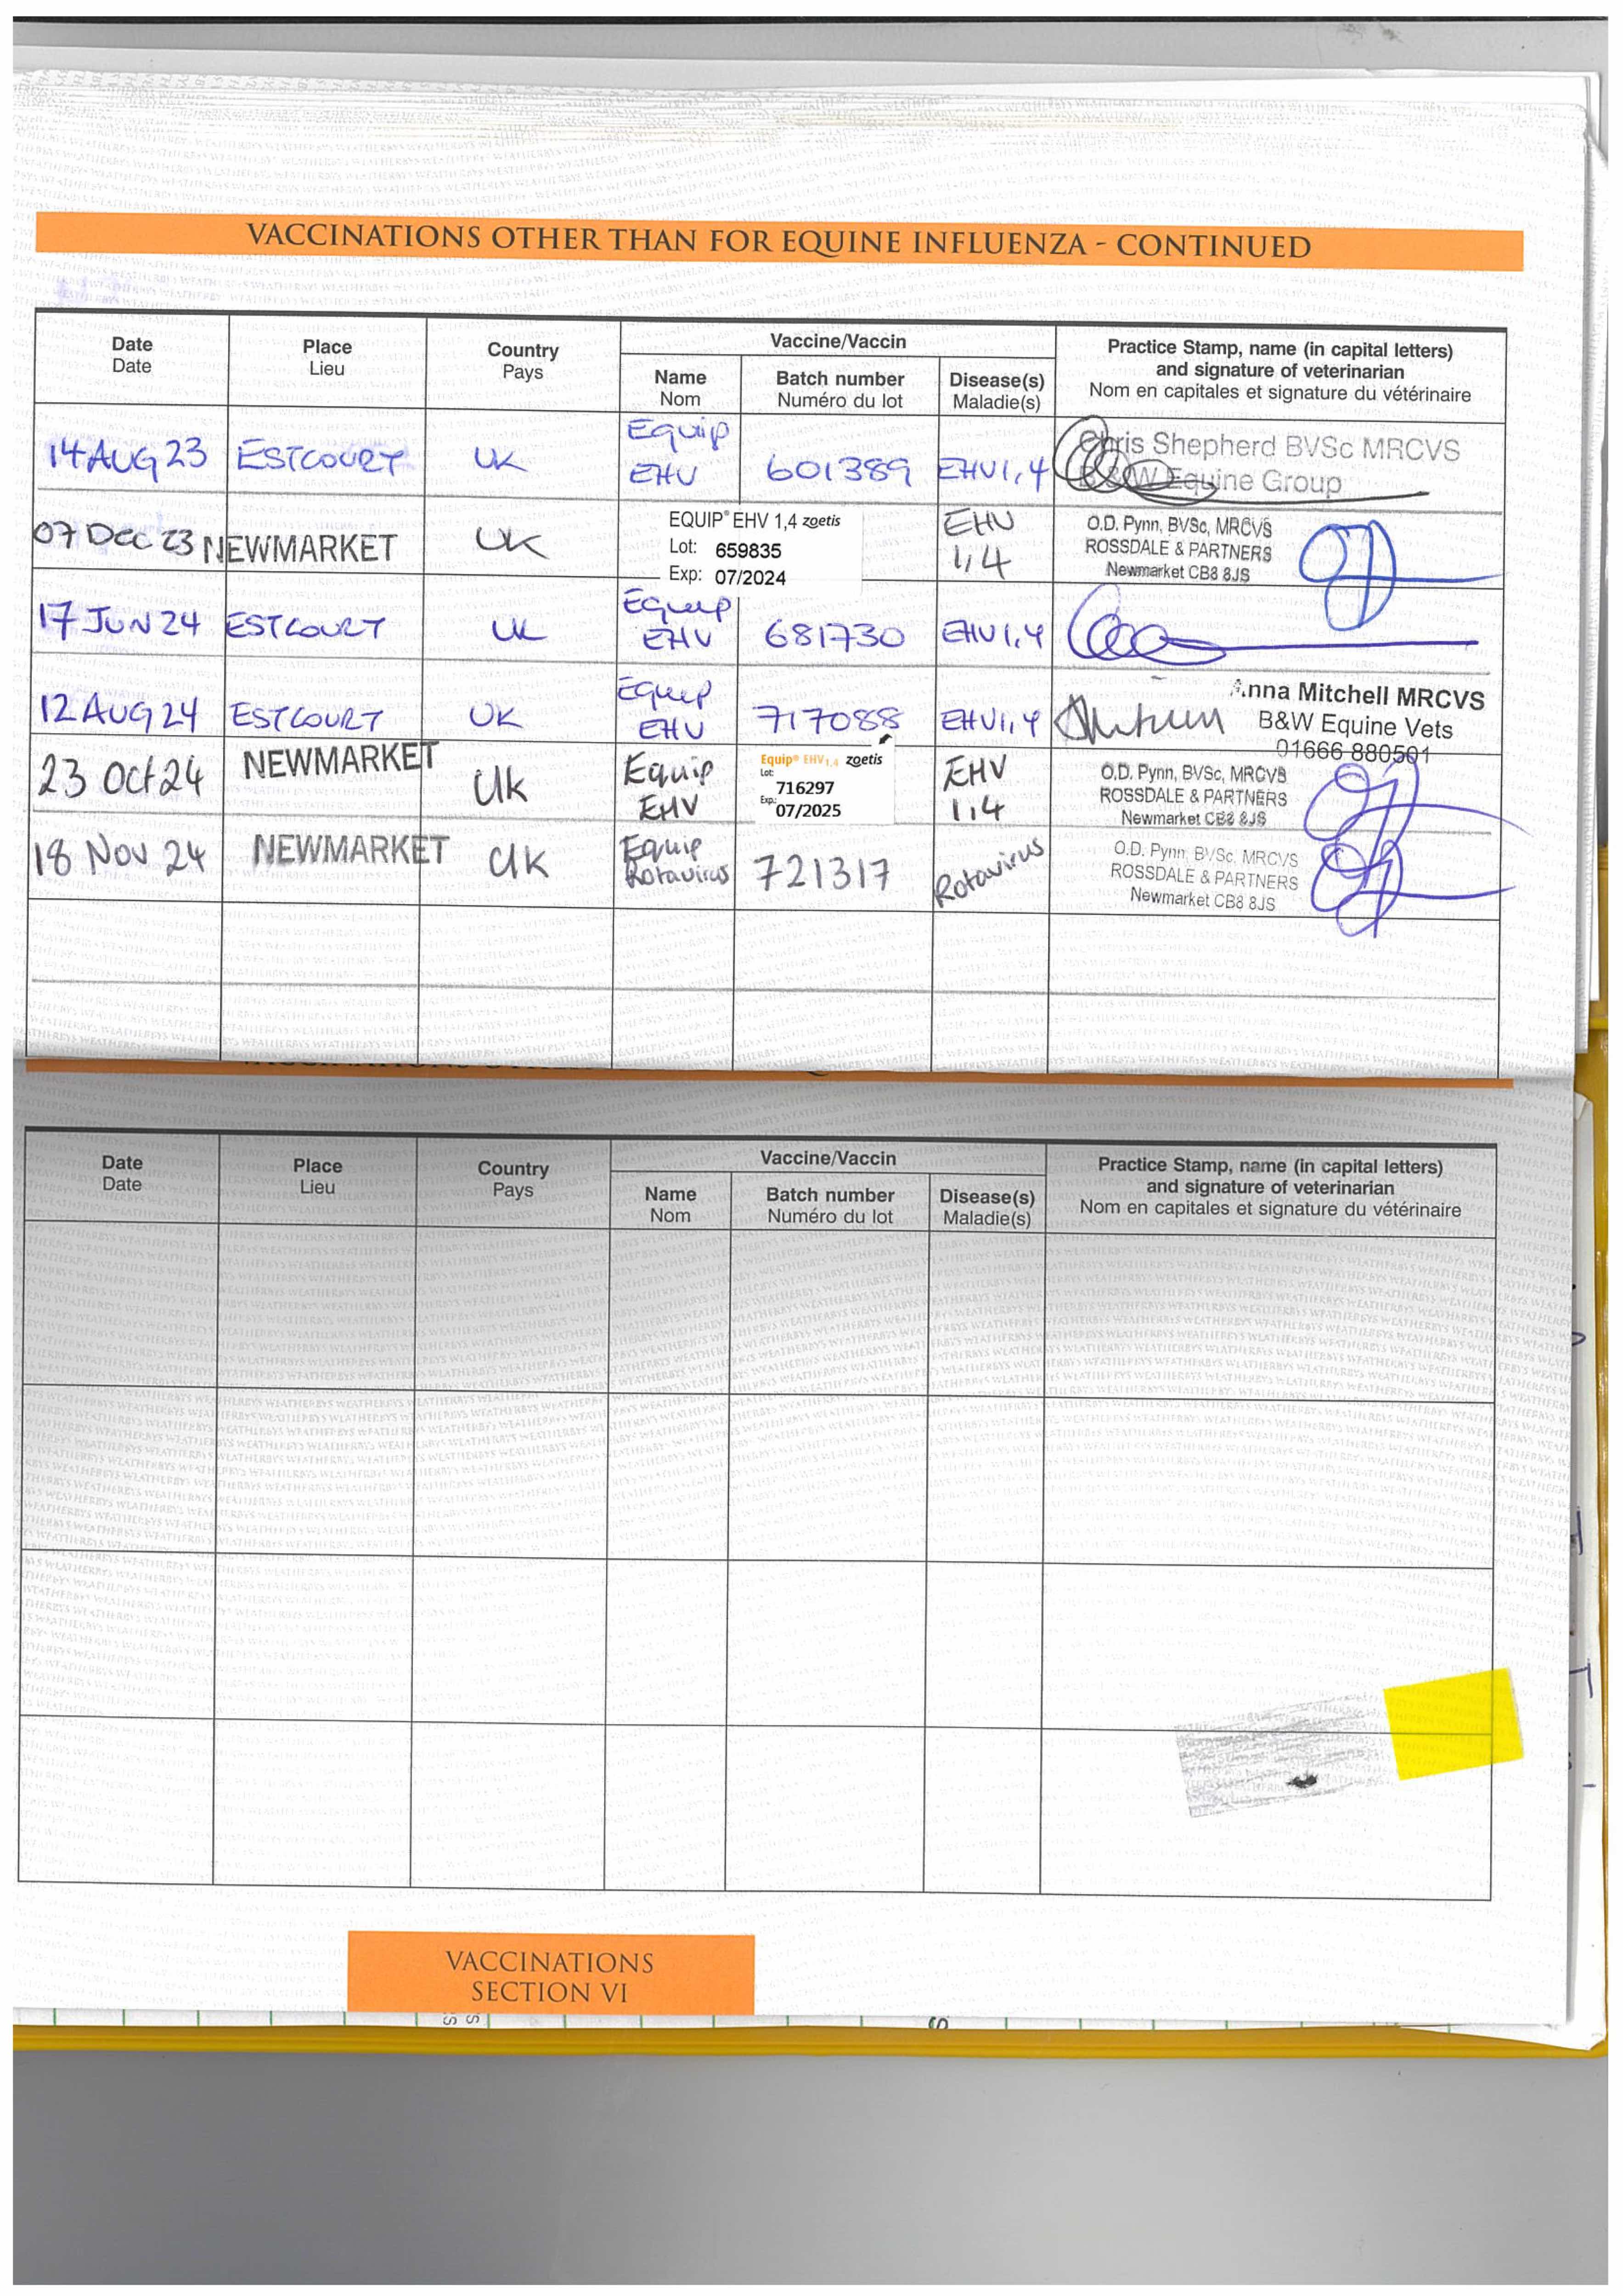 VACCINATIONS OTHER THAN FOR EQUINE INFLUENZA - CONTINUED
Date
Date
Place
Lieu
Country
Pays
Vaccine/Vaccin
Name
Nom
Batch number
Numéro du lot
Disease(s)
Maladie(s)
Practice Stamp, name (in capital letters)
and signature of veterinarian
Nom en capitales et signature du vétérinaire
14 AUG 23 ESTCOURT UK Equip EHV 601389 EHV1,4
Chris Shepherd BVSc MRCVS
B&W Equine Group
07 Dec 23 NEWMARKET UK
EQUIP® EHV 1,4 zoetis
Lot: 659835
Exp: 07/2024
EHV
1,4
O.D. Pynn, BVSc, MRCVS
ROSSDALE & PARTNERS
Newmarket CB8 8JS
17 JUN 24 ESTCOURT UK Equip EHV 681730 EHV1,4
12 AUG 24 ESTCOURT UK Equip EHV 717088 EHV1,4
Anna Mitchell MRCVS
B&W Equine Vets
01666 880501
23 Oct 24 NEWMARKET Uk Equip EHV
Equip® EHV1,4 zoetis
Lot:
716297
Exp:
07/2025
EHV
1,4
O.D. Pynn, BVSc, MRCVS
ROSSDALE & PARTNERS
Newmarket CB8 8JS
18 Nov 24 NEWMARKET UK Equip Rotavirus 721317 Rotavirus
O.D. Pynn, BVSc, MRCVS
ROSSDALE & PARTNERS
Newmarket CB8 8JS
Date
Date
Place
Lieu
Country
Pays
Vaccine/Vaccin
Name
Nom
Batch number
Numéro du lot
Disease(s)
Maladie(s)
Practice Stamp, name (in capital letters)
and signature of veterinarian
Nom en capitales et signature du vétérinaire
VACCINATIONS
SECTION VI